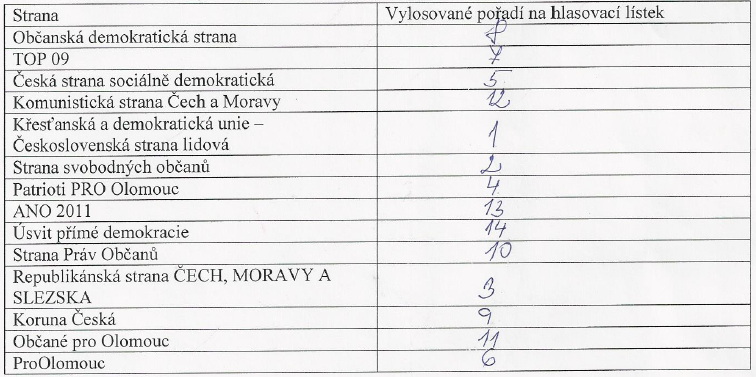 Strana Vylosované pořadí na hlasovací lístek
Občanská demokratická strana 8
TOP 09 7
Česká strana sociálně demokratická 5
Komunistická strana Čech a Moravy 12
Křesťanská a demokratická unie –
Československá strana lidová 1
Strana svobodných občanů 2
Patrioti PRO Olomouc 4
ANO 2011 13
Úsvit přímé demokracie 14
Strana Práv Občanů 10
Republikánská strana ČECH, MORAVY A
SLEZSKA 3
Koruna Česká 9
Občané pro Olomouc 11
ProOlomouc 6